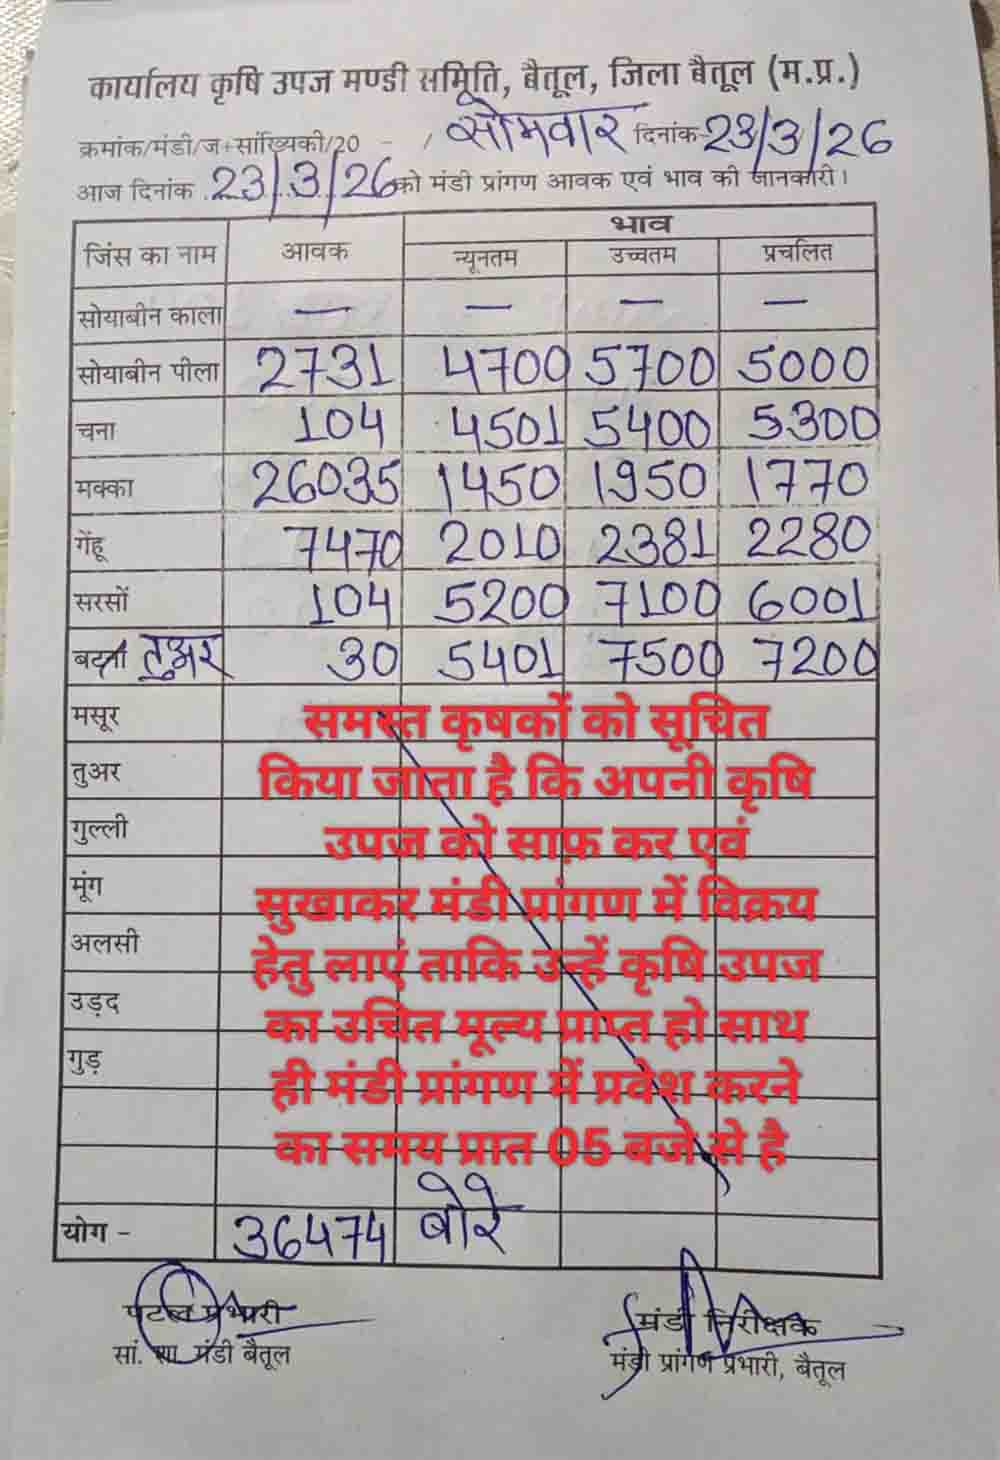 कार्यालय कृषि उपज मण्डी समिति, बैतूल, जिला बैतूल (म.प्र.)
क्रमांक/मंडी/ज+सांख्यिकी/20 - / सोमवार दिनांक-23/3/26
आज दिनांक 23/3/26 को मंडी प्रांगण आवक एवं भाव की जानकारी।
जिंस का नाम आवक भाव
न्यूनतम उच्चतम प्रचलित
सोयाबीन काला — — — —
सोयाबीन पीला 2731 4700 5700 5000
चना 104 4501 5400 5300
मक्का 26035 1450 1950 1770
गेंहू 7470 2010 2381 2280
सरसों 104 5200 7100 6001
तुअर 30 5401 7500 7200
मसूर
तुअर
गुल्ली
मूंग
अलसी
उड़द
गुड़
समस्त कृषकों को सूचित
किया जाता है कि अपनी कृषि
उपज को साफ़ कर एवं
सुखाकर मंडी प्रांगण में विक्रय
हेतु लाएं ताकि उन्हें कृषि उपज
का उचित मूल्य प्राप्त हो साथ
ही मंडी प्रांगण में प्रवेश करने
का समय प्रात 05 बजे से है
योग - 36474 बोरे
प्रभारी
सां. शा. मंडी बैतूल
मंडी निरीक्षक
मंडी प्रांगण प्रभारी, बैतूल